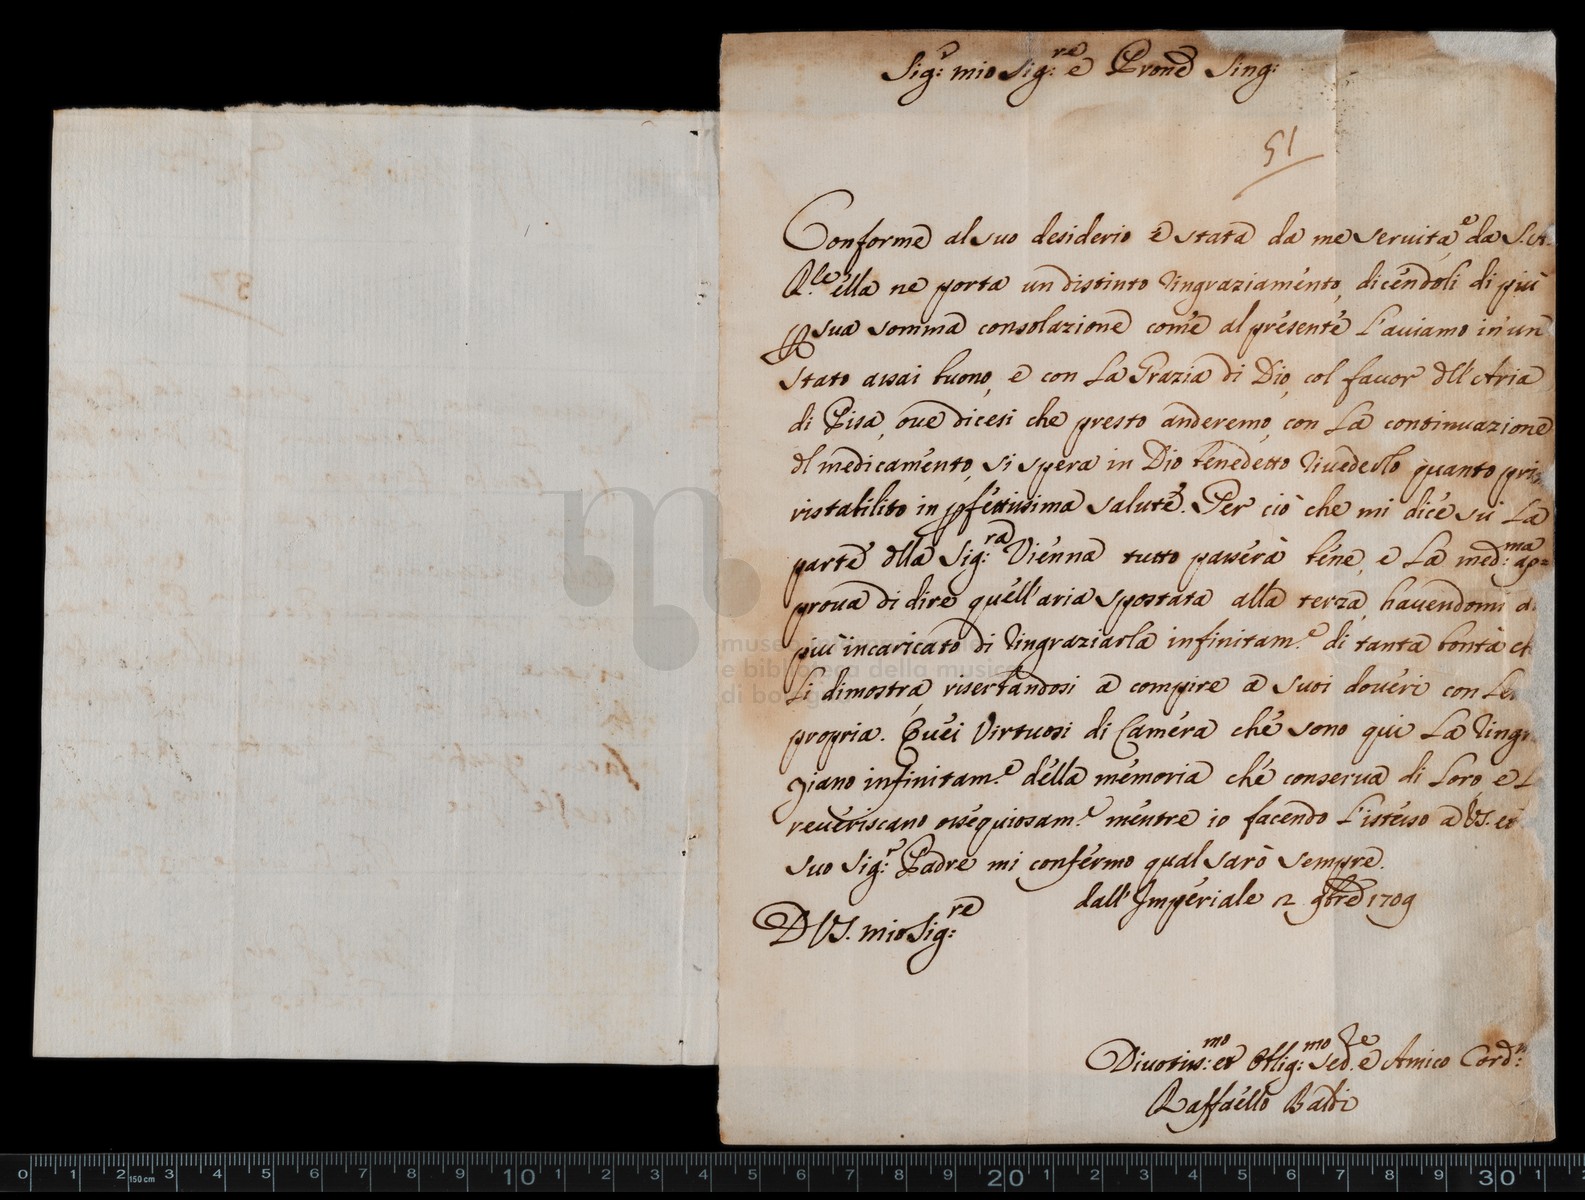 Sig:r mio Sig:re e Prone Sing:
51
Conforme al suo desiderio è stata da me servita, e da S. A.
R.le ella ne porta un distinto ringraziamento, dicendoli di più
sua somma consolazione come al presente l'aviamo in un
stato assai buono, e con la Grazia di Dio, col favor dll'Aria
di Pisa, ove dicesi che presto anderemo, con la continuazione
dl medicamento, si spera in Dio benedetto rivederlo quanto pri
ristabilito in pfettissima salute. Per ciò che mi dice sù la
parte dlla Sig:ra Vienna tutto passerà bene, e la med:ma ap=
prova di dire quell'aria spostata alla terza, havendomi d
più incaricato di ringraziarla infinitam.e di tanta bontà ch
li dimostra, riserbandosi a compire a suoi doveri con le
propria. Quei Virtuosi di Camera che sono qui la ringr
ziano infinitam.e della memoria che conserva di loro, e l
reveriscano ossequiosam.e mentre io facendo l'istesso a VS. et
suo Sig:r Padre mi confermo qual sarò sempre.
dall'Imperiale 2 9bre 1709
D VS. mio Sig:re
Divotiss:mo et Obblig:mo Se.re e Amico Cord:
Raffaello Baldi
37
museo internazionale
e biblioteca della musica
di bologna
0 1 2 3 4 5 6 7 8 9 10 1 2 3 4 5 6 7 8 9 20 1 2 3 4 5 6 7 8 9 30 1
150 cm